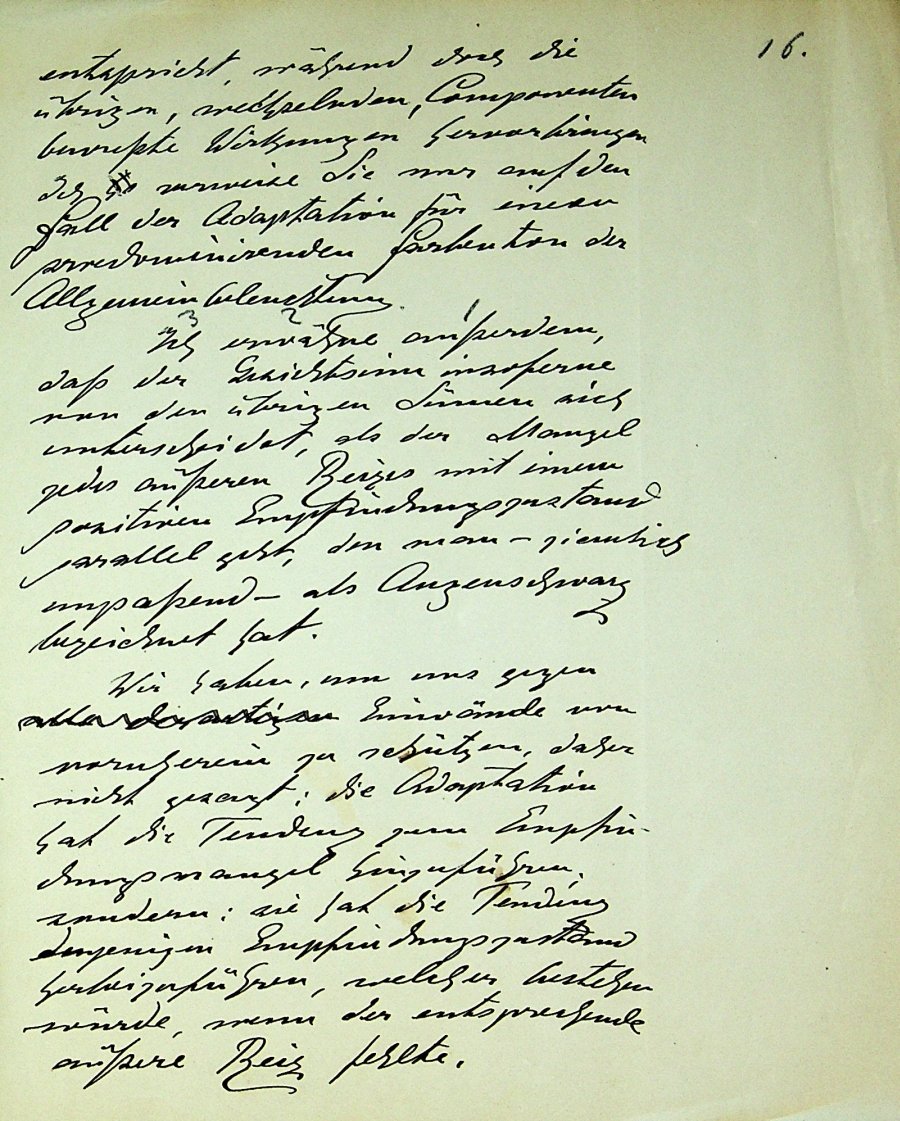 16.
entspricht, während doch die
übrigen, wechselnden, Componenten
bewußte Wirkungen hervorbringen
Ich verweise Sie nur auf den
Fall der Adaptation für einen
praedominirenden Farbenton der
Allgemeinbeleuchtung.
Ich erwähne außerdem,
daß der Gesichtssinn insoferne
von den übrigen Sinnen sich
unterscheidet, als der Mangel
jedes äußeren Reizes mit einem
positiven Empfindungszustand
parallel geht, den man – ziemlich
unpaßend – als Augenschwarz
bezeichnet hat.
Wir haben, um uns gegen
alle derartigen Einwände von
vornherein zu schützen, daher
nicht gesagt: die Adaptation
hat die Tendenz zum Empfin-
dungsmangel hinzuführen,
sondern: sie hat die Tendenz
denjenigen Empfindungszustand
herbeizuführen, welcher bestehen
würde, wenn der entsprechende
äußere Reiz fehlte.